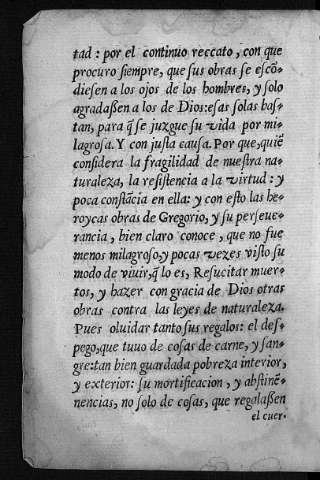 tad: por el continuo reccato, con que
procuro siempre, que sus obras se escõ-
diesen a los ojos de los hombres, y solo
agradaßen a los de Dios: esas solas bas-
tan, para q̃ se juzgue su vida por mi-
lagrosa. Y con justa causa. Por que, quiẽ
considera la fragilidad de nuestra na-
turaleza, la resistencia a la virtud: y
poca constãcia en ella: y con esto las he-
roycas obras de Gregorio, y su perseue-
rancia, bien claro conoce, que no fue
menos milagroso, y pocas vezes visto su
modo de viuir, q̃ lo es, Resucitar muer-
tos, y hazer con gracia de Dios otras
obras contra las leyes de naturaleza.
Pues oluidar tanto sus regalos: el des-
pego, que tuuo de cosas de carne, y san-
gre: tan bien guardada pobreza interior,
y exterior: su mortificacion, y abstinẽ-
nencias, no solo de cosas, que regalaßen
el cuer-